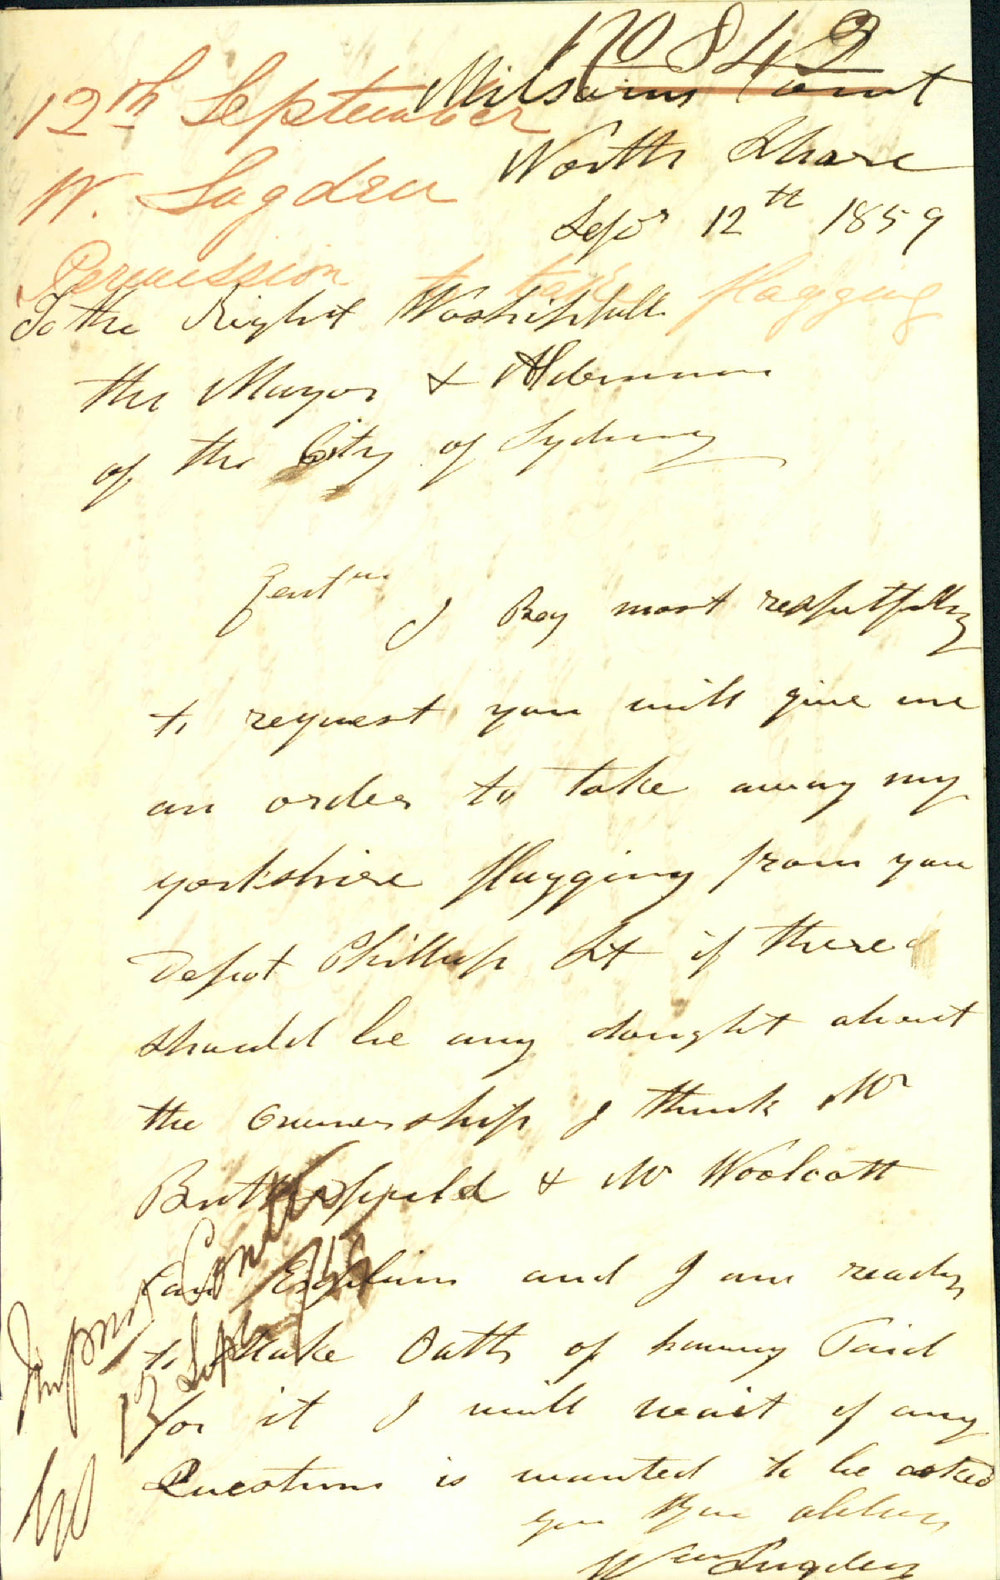 1708 42
12th September
Milsoms Point
North Shore
W. Sugden
Sepr 12th 1859
Permission to take flagging
To the Right Woshipfull
the Mayor & Aldermen
of the City of Sydney
Gentmn
I Beg most respectfully
to request you will give me
an order to take away my
yorkshire flagging from you
Depot Phillup St if there
should be any dought about
the ownership I think Mr
Butterfield & Mr Woolcott
Can Explain and I am ready
to take Oath of having Paid
for it I will wait if any
Questions is wanted to be asked
your
Wm Sugden
Improvt Comttee
13 Sept